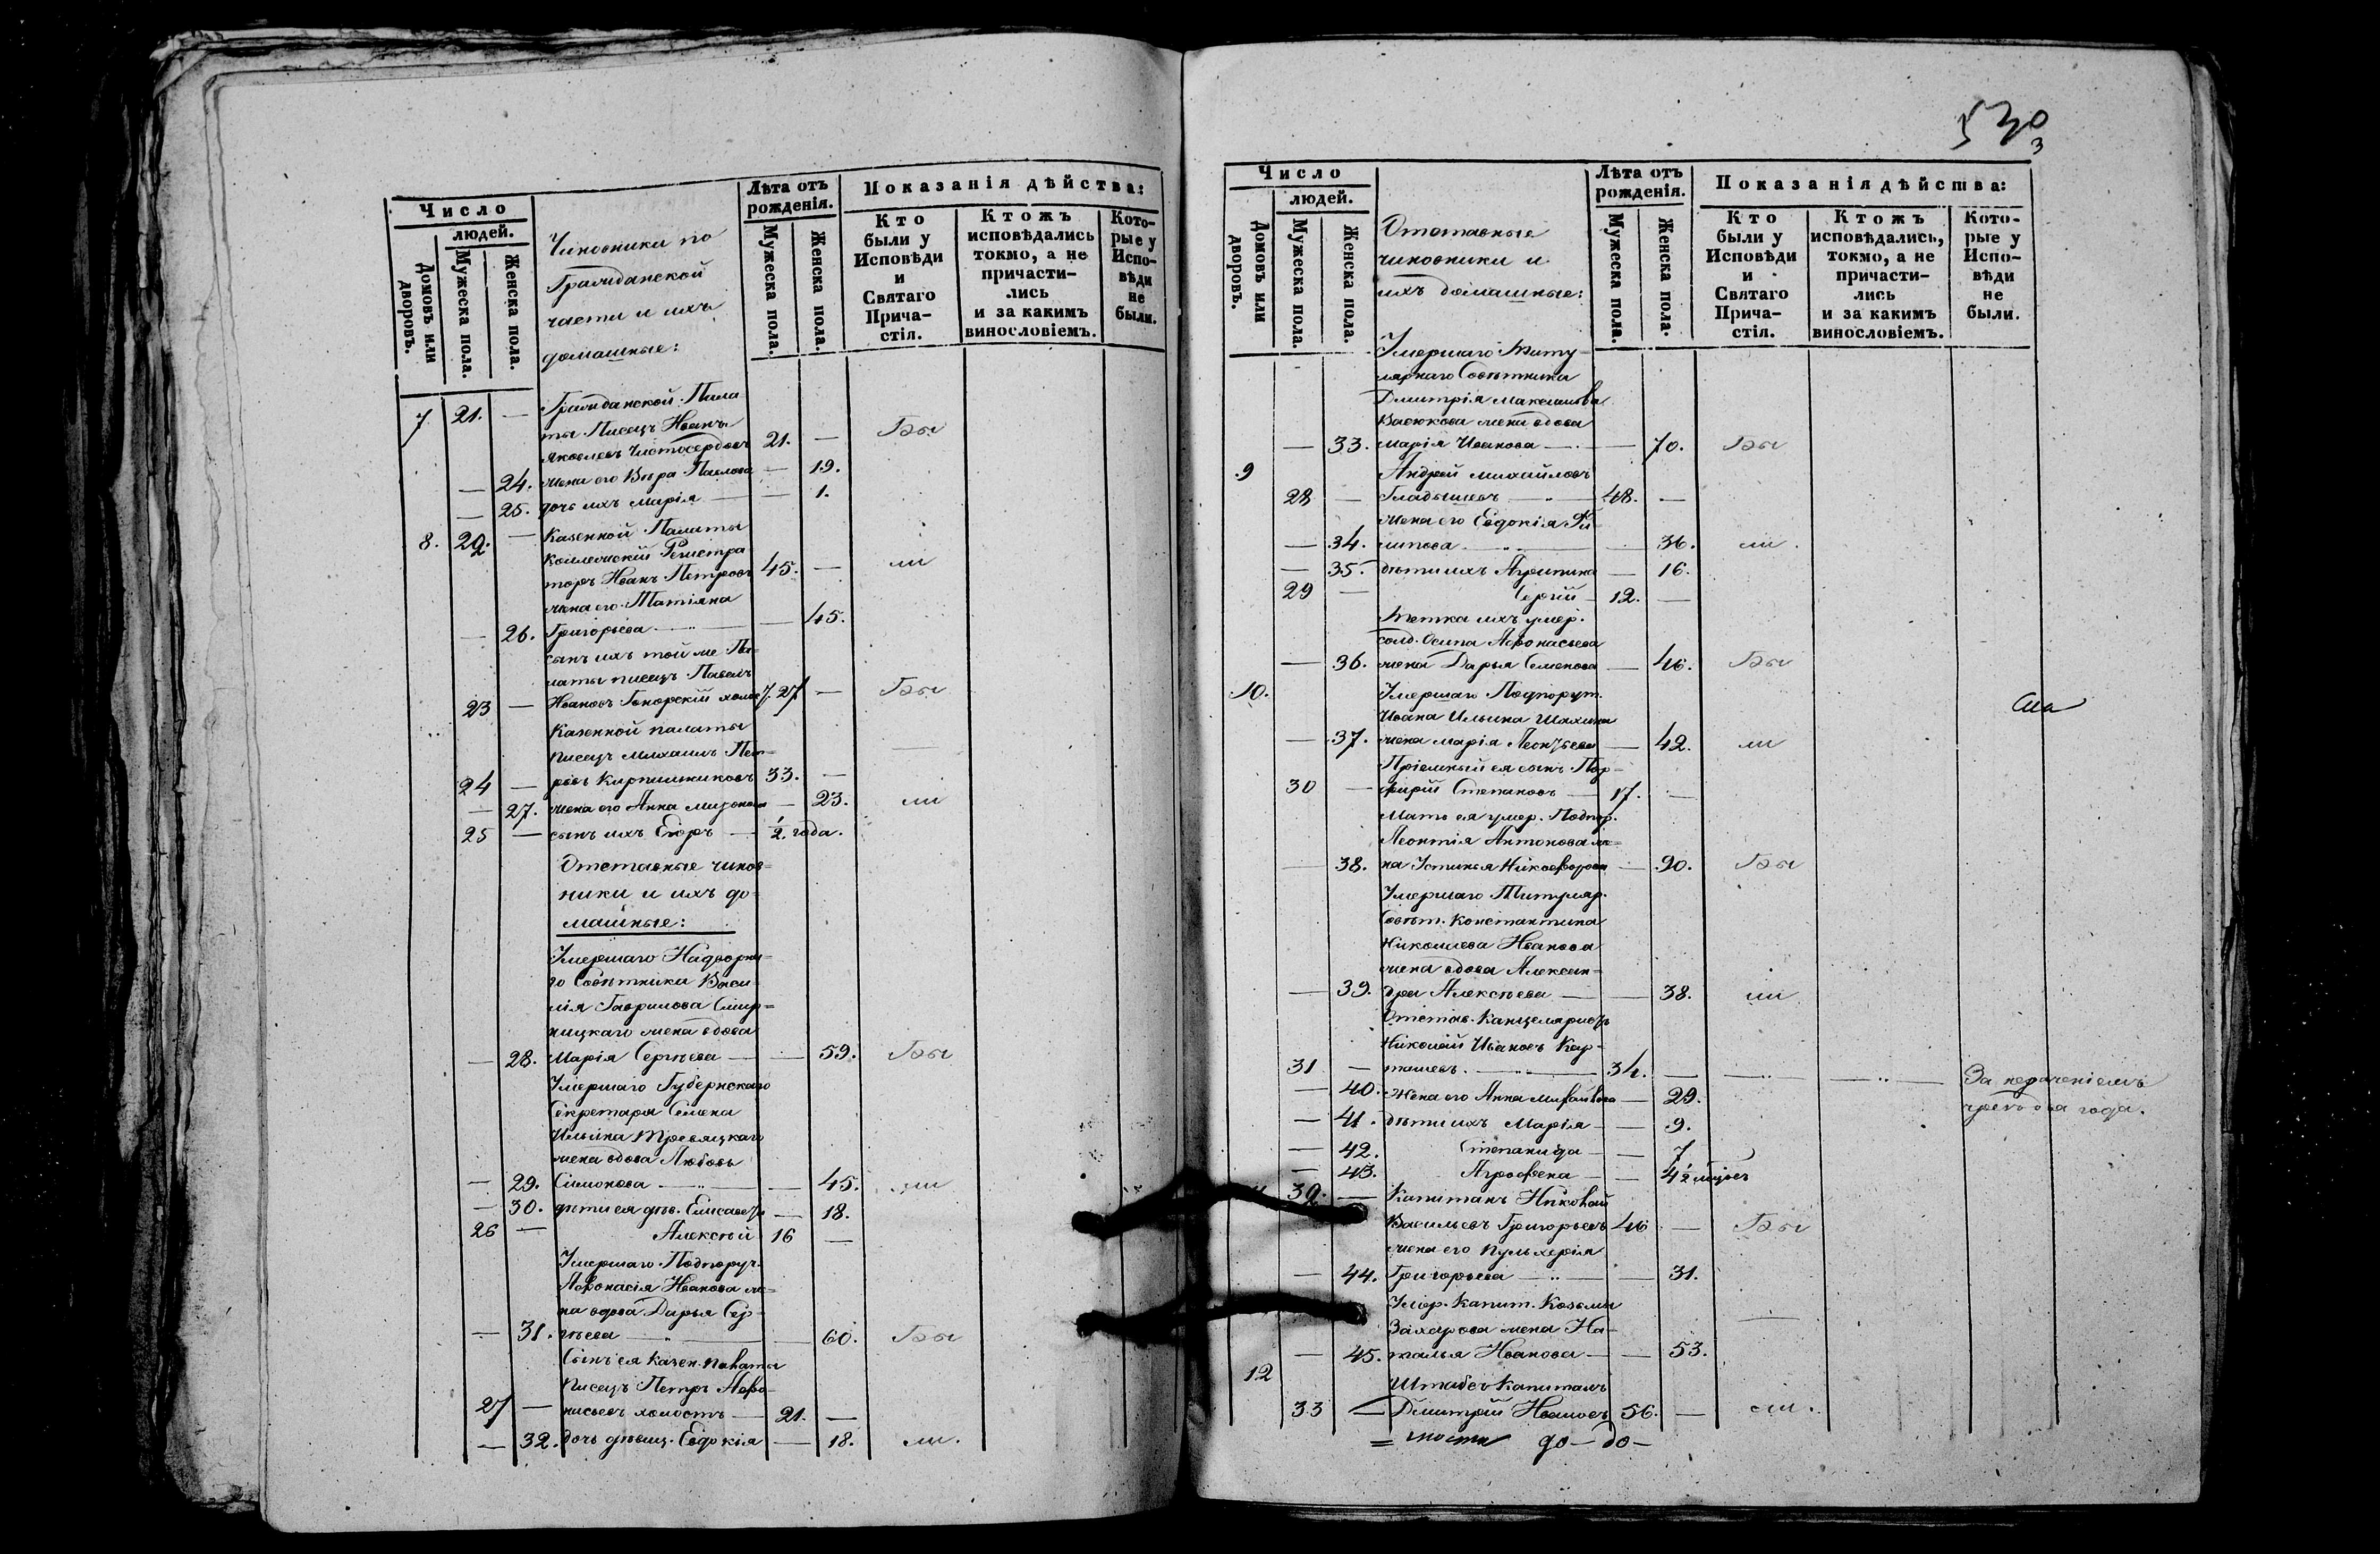 Число
людей.
Домовъ или дворовъ.
Мужеска пола.
Женска пола.
Чиновники по
Гражданской
части и ихъ
домашные:
Лѣта отъ
рожденія.
Мужеска пола.
Женска пола.
Показанія дѣйства:
Кто
были у
Исповѣди
и
Святаго
Прича-
стія.
Ктожъ
исповѣдались
токмо, а не
причасти-
лись
и за какимъ
винословіемъ.
Кото-
рые у
Испо-
вѣди
не
были.
Гражданской Пала
7 21. — ты Писецъ Иванъ
Яковлевъ Чистосердовъ 21. — Бы
— 24. жена его Вѣра Павлова — 19.
— 25. дочь ихъ Марія — — 1.
8. 22. — Казенной Палаты
Коллежскій Регистра
торъ Иванъ Петровъ 45. — ли
жена его Татіяна
— 26. Григорьева — — 45.
сынъ ихъ той же Па-
латы писецъ Павелъ
23 — Ивановъ 27 — Бы
Казенной палаты
писецъ Михаилъ Пет-
24 — ровъ Кирпишниковъ 33. —
— 27. жена его Анна — 23. ли
25 — сынъ ихъ Егоръ — ½ года.
Отставные чинов-
ники и ихъ до-
машные:
Умершаго Надворна-
го Совѣтника Васи-
лія Гаврилова Смир-
ницкаго жена вдова
— 28. Марія Сергѣева — — 59. Бы
Умершаго Губернскаго
Секретаря Семена
Ильина
жена вдова Любовь
— 29. Симонова — — 45. ли
— 30. дѣти ея дѣв. Елисавета — 18.
26 — Алексѣй 16 —
Умершаго Подпоруч.
Афонасія Иванова же-
на вдова Дарья Сер-
— 31. гѣева — — 60. Бы
Сынъ ея казен. палаты
писецъ Петръ Афо-
27 — насьевъ холостъ — 21. —
— 32. дочь дѣвиц. Евдокія — 18. ли.
530
3
Число
людей.
Домовъ или дворовъ.
Мужеска пола.
Женска пола.
Отставные
чиновники и
ихъ домашные:
Лѣта отъ
рожденія.
Мужеска пола.
Женска пола.
Показанія дѣйства:
Кто
были у
Исповѣди
и
Святаго
Прича-
стія.
Ктожъ
исповѣдались,
токмо, а не
причасти-
лись
и за какимъ
винословіемъ.
Кото-
рые у
Испо-
вѣди
не
были.
Умершаго Титу-
лярнаго Совѣтника
Дмитрія Максимова
Васюкова жена вдова
— 33. Марія Иванова — — 70. Бы
9 Андрей Михайловъ
28 — Гладышевъ — 48. —
жена его Евдокія Фи-
— 34. липова — — 36. ли
— 35. дѣти ихъ Агрипина — 16.
29 — Сергій 12. —
Тетка ихъ умер.
солд. Осипа Афонасьева
— 36. жена Дарья Семенова — 46. Бы
10. Умершаго Подпорут.
Ивана Ильина Шахина
— 37. жена Марія Леонтьева — 42. ли
Пріемный ея сынъ Пор-
30 — фирій Степановъ — 17. —
Мать ея умер. Подпор.
Леонтія Антонова же-
— 38. на Устинья Никифорова — 90. Бы
Умершаго Титуляр.
Совѣт. Константина
Николаева Иванова
жена вдова Алексан-
— 39. дра Алексѣева — — 38. ли
Отстав. Канцеляристъ
Николай Ивановъ Кар-
31 — ташевъ. — 34. — — — За нераченіемъ
— 40. Жена его Анна — 29. два года.
— 41. дѣти ихъ Марія — — 9.
— 42. Степанида — — 7
— 43. Агрофена — — 4½
32. — Капитанъ Николай
Васильевъ Григорьевъ 46 — Бы
жена его Пульхерія
— 44. Григорьева — — 31.
Умер. Капит. Козьмы
Захарова жена На-
— 45. талья Иванова — — 53.
12 Штабсъ-Капитанъ
33 — Дмитрій Ивановъ 56. — ли.